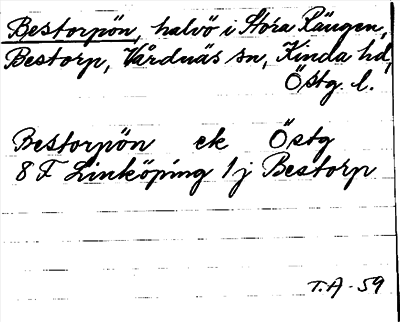 Bestorpön, halvö i Stora Rängen,
Bestorp, Vårdnäs sn, Kinda hd,
Östg. l.
Bestorpön ek Östg
8 F Linköping 1 j Bestorp
T.A - 59